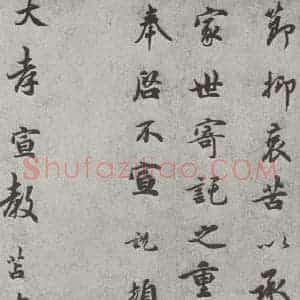 節抑哀苦以承
家世寄託之重
奉啓不宣 說頓
大孝宣教 苫
Shufaziliao.COM